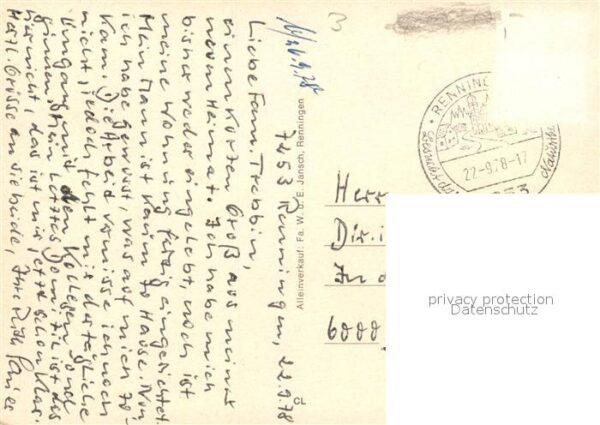 7253 Renningen, 22.9.78
Liebe Fam. Trebbin,
einen kurzen Gruß aus meiner
neuen Heimat. Ich habe mich
bisher weder eingelebt, noch ist
meine Wohnung fertig eingerichtet.
Mein Mann ist kaum zu Hause. Nun
ich habe gewusst, was auf mich zu-
kam. Die Arbeit vermisse ich noch
nicht, jedoch fehlt mir der tägliche
Umgang mit den Kollegen und
Kolleginnen. Mein letztes Domizil ist das
hier nicht, das ist mir jetzt schon klar.
Herzl. Grüsse an Sie beide, Ihre
Alleinverkauf: Fa. W. u. E. Jansch, Renningen
RENNING
22-9.78-17
Herr
Dir.i
In d
6000
privacy protection
Datenschutz